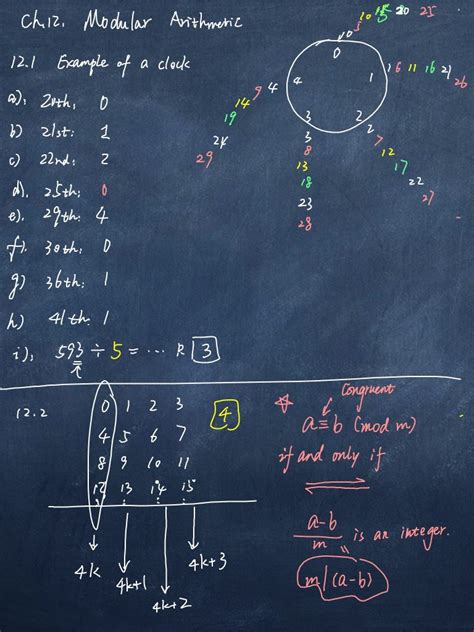 Ch.12. Modular Arithmetic
12.1 Example of a clock
a): 20th: 0
b) 21st: 1
c) 22nd: 2
d). 25th: 0
e). 29th: 4
f). 30th: 0
g) 36th: 1
h) 41th: 1
i): 593 ÷ 5 = ... R 3
10 15 20 25
5
0
0
1 6 11 16 21 26
2
2 7 12 17 22 27
3
3 8 13 18 23 28
4
4 9 14 19 24 29
12.2
0 1 2 3
4 5 6 7
8 9 10 11
12 13 14 15
4k 4k+1 4k+2 4k+3
4
Congruent
a≡b (mod m)
if and only if
a-b
m is an integer.
m|(a-b)